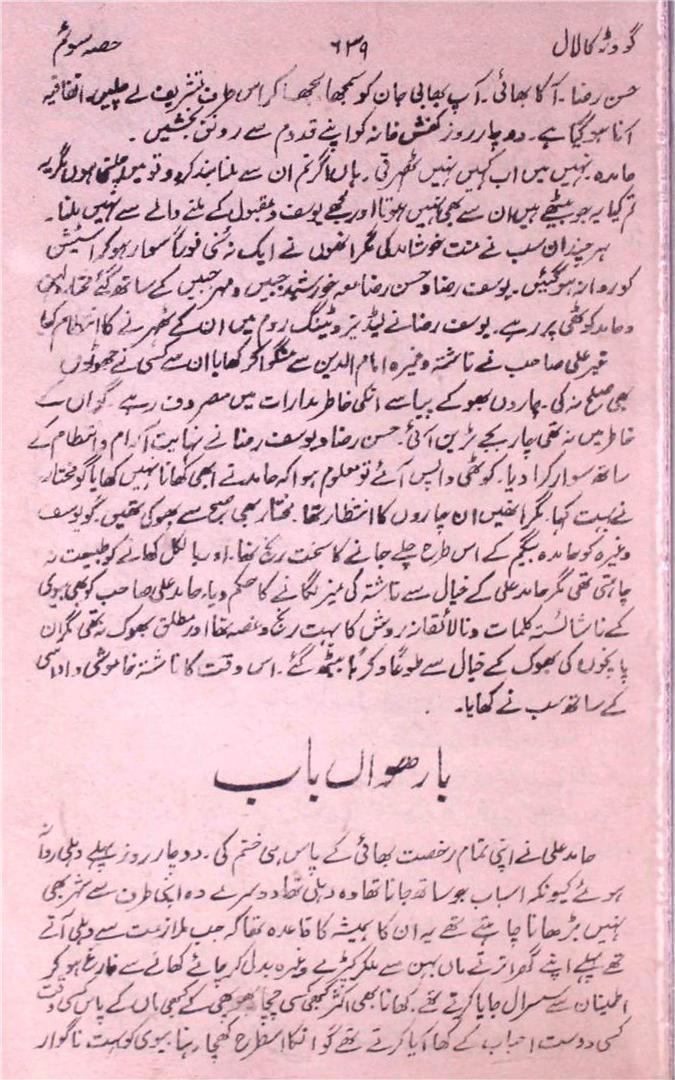 گودڑ کا لال ۶۳۹ حصہ سوئم
حسن رضا۔ آکا بھائی۔ آپ بھابی جان کو سمجھا بجھا کر اس طرف تشریف لے چلیں۔ اتفاقیہ
آنا ہو گیا ہے۔ دو چار روز کفش خانہ کو اپنے قدوم سے رونق بخشیں۔
حامدہ۔ نہیں میں اب کہیں نہیں ٹھہرتی۔ ہاں اگر تم ان سے ملنا بند کر دو تو میں چلتی ہوں مگر یہ
تم کیا یہ جو بیٹھے ہیں ان سے بھی نہیں ہوتا اور مجھے یوسف و مقبول کے ملنے والے سے نہیں ملنا۔
ہر چند ان سب نے منت خوشامد کی مگر انھوں نے ایک نہ سُنی فوراً سوار ہو کر اسٹیشن
کو روانہ ہو گئیں۔ یوسف رضا و حسن رضا معہ خورشید جبیں و مہر جبیں کے ساتھ گئے مختار
و حامد کوٹھی پر رہے۔ یوسف رضا نے لیڈیز ویٹنگ روم میں ان کے ٹھہرنے کا انتظام کیا
میر علی صاحب نے ناشتہ وغیرہ امام الدین سے منگوا کر کھایا ان سے کسی نے جھوٹوں
بھی صلح نہ کی۔ چاروں بھوکے پیاسے انکی خاطر مدارات میں مصروف رہے۔ گو ان کے
خاطر میں نہ تھی چار بجے ٹرین آئی۔ حسن رضا و یوسف رضا نے نہایت آرام و انتظام کے
ساتھ سوار کرا دیا۔ کوٹھی واپس آئے تو معلوم ہوا کہ حامد نے ابھی کھانا نہیں کھایا گو مختار
نے بہت کہا۔ مگر انھیں ان چاروں کا انتظار تھا۔ مختار بھی صبح سے بھوکی تھیں۔ گو یوسف
وغیرہ کو حامدہ بیگم کے اس طرح چلے جانے کا سخت رنج تھا۔ اور بالکل کھانے کو طبیعت نہ
چاہتی تھی مگر حامد علی کے خیال سے ناشتہ کی میز لگانے کا حکم دیا۔ حامد علی صاحب کو بھی بیوی
کے ناشائستہ کلمات و نالائقانہ روش کا بہت رنج و غصہ تھا اور مطلق بھوک نہ تھی مگر ان
پانچوں کی بھوک کے خیال سے طوعاً و کرہاً بیٹھ گئے۔ اس وقت کا ناشتہ خاموشی و اداسی
کے ساتھ سب نے کھایا۔
بارھواں باب
حامد علی نے اپنی تمام رخصت بھائی کے پاس ہی ختم کی۔ دو چار روز پہلے دہلی روانہ
ہوئے کیونکہ اسباب جو ساتھ جانا تھا وہ دہلی تھا دوسرے وہ اپنی طرف سے شر بھی
نہیں بڑھانا چاہتے تھے یہ ان کا ہمیشہ کا قاعدہ تھا کہ جب ملازمت سے دہلی آتے
تھے پہلے اپنے گھر اترتے ماں بہن سے ملکر کپڑے وغیرہ بدل کر چائے کھانے سے فارغ ہو کر
اطمینان سے سسرال جایا کرتے تھے۔ کھانا بھی اکثر کبھی کسی چچا پھوپھی کے کبھی ماں کے پاس کسی وقت
کسی دوست احباب کے کھا آیا کرتے تھے گو انکا اسطرح کھچا رہنا بیوی کو بہت ناگوار